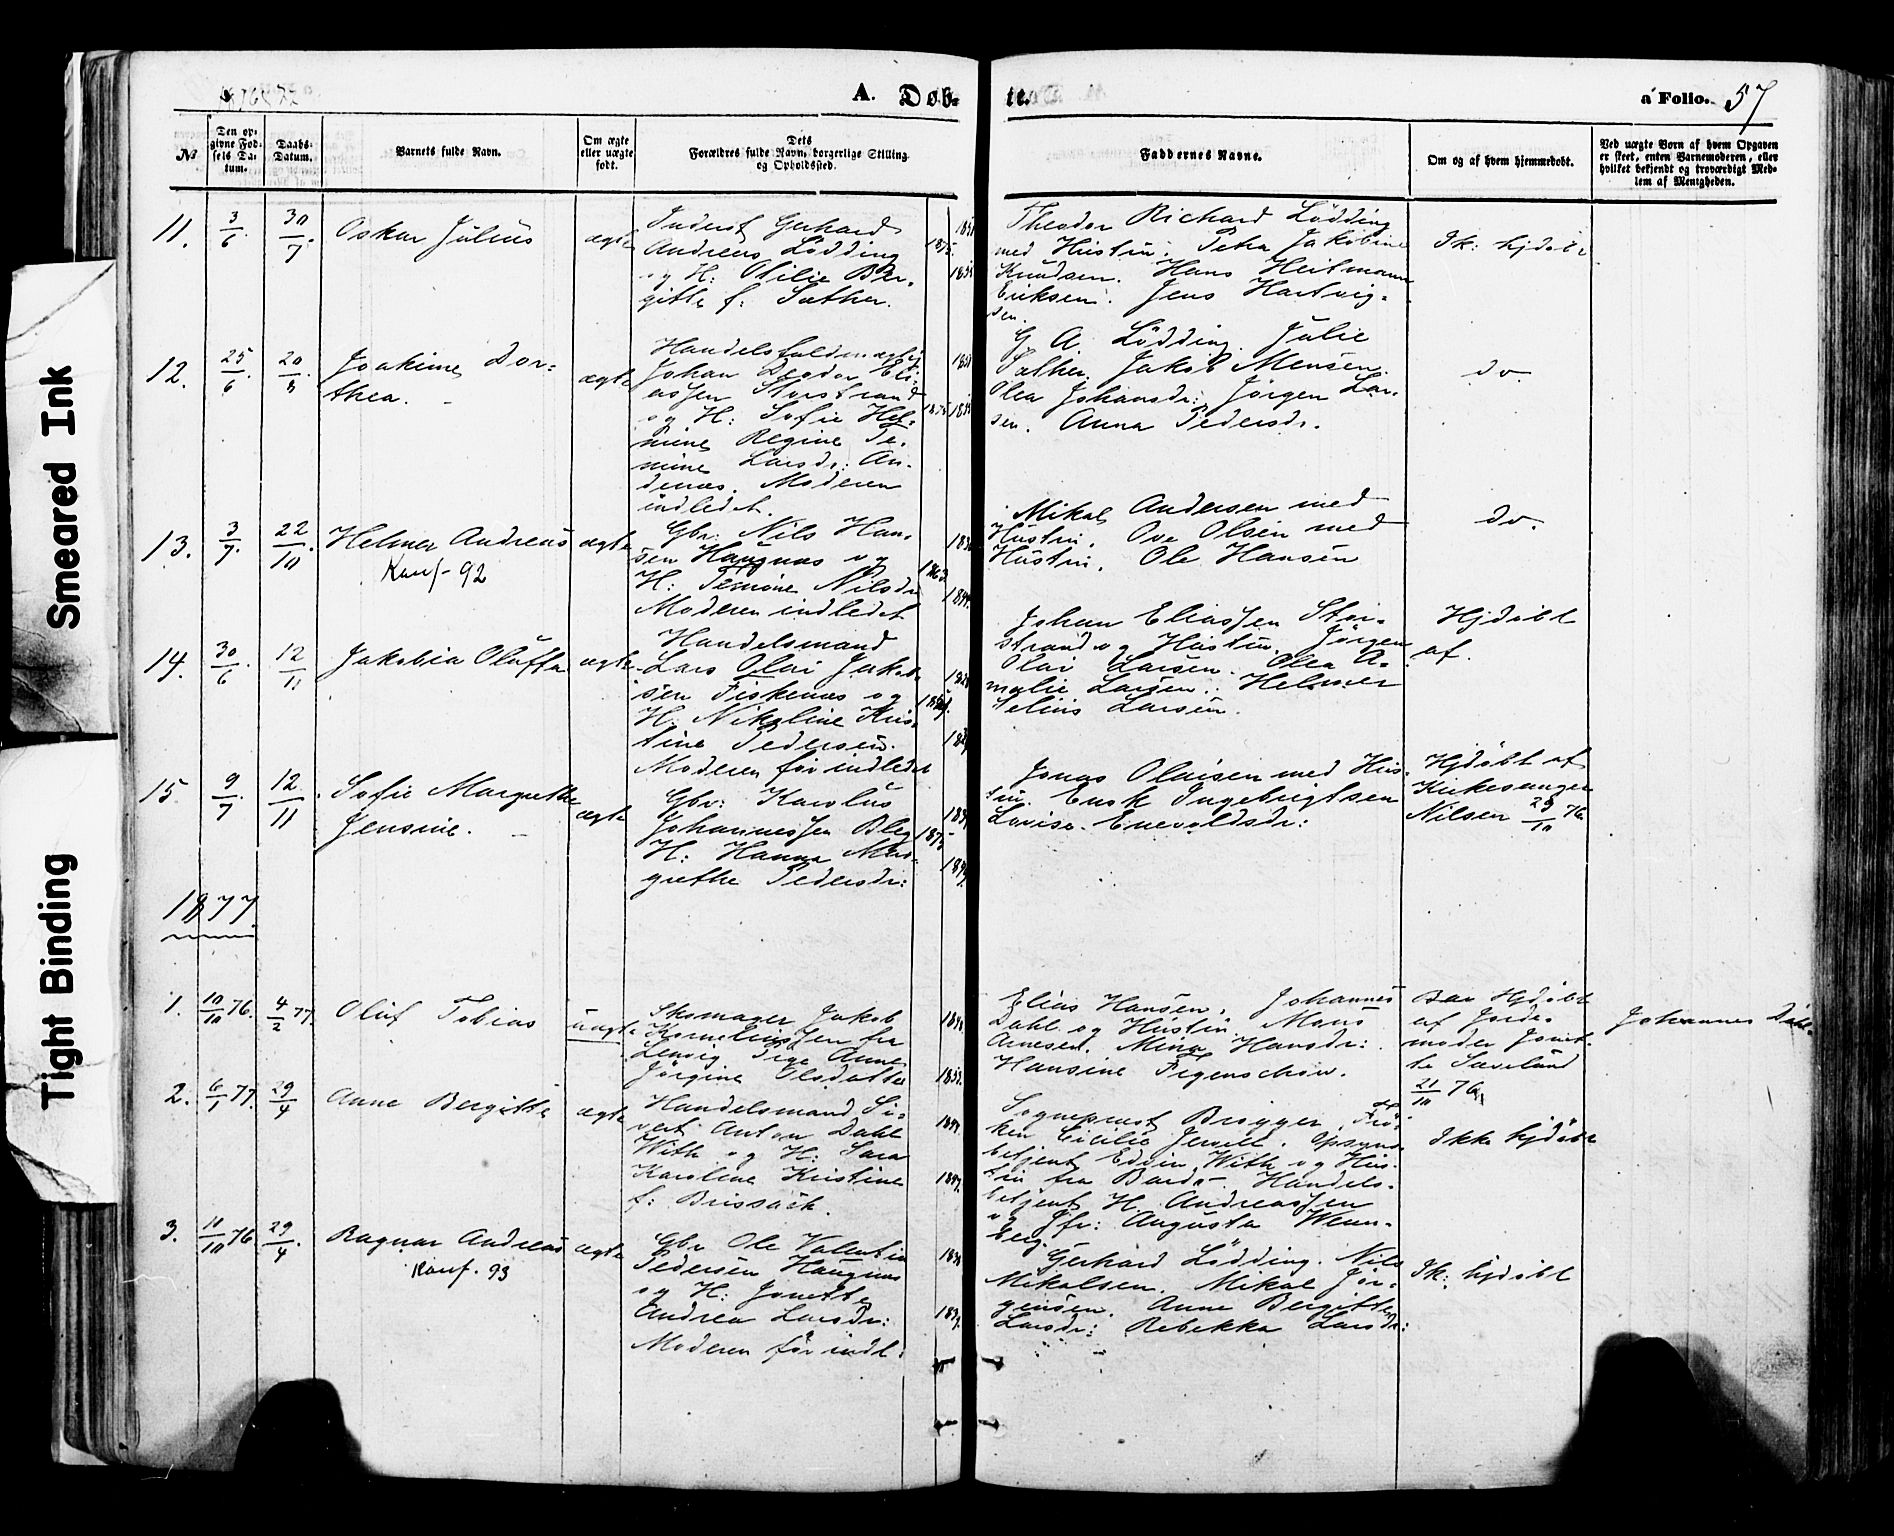 Smeared Ink
Tight Binding
A. Døb-
te.
a Folio. 57
No
Den op-
givne Fød-
sels Da-
tum.
Daabs-
Datum.
Barnets fulde Navn.
Om ægte
eller uægte
født.
Dets
Forældres fulde Navn, borgerlige Stilling
og Opholdssted.
Faddernes Navne.
Om og af hvem hjemmedøbt.
Ved uægte Børn af hvem Opgaven
er skeet, enten Barnemoderen, eller
hvilket bekjendt og troværdigt Med-
lem af Menigheden.
11. 3/6. 30/7. Oskar Julius ægte
Inderst Gerhard
Andreas Lödding
og H: Otilie Ber-
gitte f: Sæther.
1875.
Theodor Richard Lödding
med Hustru. Petra Jakobine
Knudsen. Hans Heitmann
Eriksen. Jens Hartvig-
sen.
Ik: hjdøbt
12. 25/6. 20/8. Joakime Dor-
thea. ægte
Johan Elia-
assen Storstrand
og H: Sofie Hel-
mine Regine Pe-
mine Larsdr: An-
denæs. Moderen
indledet.
G. A. Lödding. Julie
Sæther. Jakob Mensen.
Olea Johansdr: Jörgen Lar-
sen. Anna Pedersdr.
do.
13. 3/7. 22/10. Helmer Andreas ægte
Konf- 92
Gbr. Nils Han-
sen Haugnæs og
H: Nilsdr
Moderen indledet
1863.
Mikal Andersen med
Hustru. Ove Olsen med
Hustru. Ole Hansen
do.
14. 30/6. 12/11 Jakobia Oluffa ægte
Handelsmand
Lars Olai Jakob-
sen Fiskenæs og
H. Nikoline Kris-
tine Pedersen.
Moderen før indledet
Johan Eliassen Stor-
strand og Hustru. Jörgen
Olai Larsen. Olea A-
malie Larsen. Helmer
Selius Larsen.
Hjdøbt
af.
15. 9/7. 12/11. Sofie Margrethe
Jensine. ægte
Gbr: Karolus
Johannessen Bleg
H: Hanna Mar-
grethe Pedersdr:
Jonas Olaisen med Hus-
tru. Enok Ingebrigtsen
Lovise Enevoldsdr:
Hjdøbt af
Kirkesanger
Nilsen 29/10 76
1877
1. 10/10 76. 4/2 77. Oluf Tobias uægte
Skomager Jakob
Korneliussen fra
Lenvig Pige Anne
Jörgine Olsdatter
Elias Hansen. Johannes
Dahl og Hustru. Mons
Arnesen. Mina Hansdr:
Hansine Figenschou.
Bar Hjdøbt
af Jorde-
moder Jonet-
te Soveland
21/10 76
Johannes Dahl
2. 6/1 77. 29/4 Anne Bergitte ægte
Handelsmand Si-
vert Anton Dahl
With og H: Sara
Karolene Kristine
f: Brissach.
Sogneprest Brøgger. Frø-
ken Cicilie Jervell.
betjent Edvin With og Hus-
tru fra Bardo. Handels-
betjent H. Andreassen
og Jfr: Augusta Wenn-
berg.
Ikke hjdøbt
3. 10/10 76. 29/4. Ragnar Andreas ægte
Konf. 93
Gbr Ole Valentin
Pedersen Haugnæs
og H: Jonette
Andrea Larsdr:
Moderen før indl:
Gerhard Lödding. Nils
Mikalsen. Mikal Jör-
gensen. Anne Bergitte
Larsdr: Rebekka Larsdr:
Ik: hjdøbt